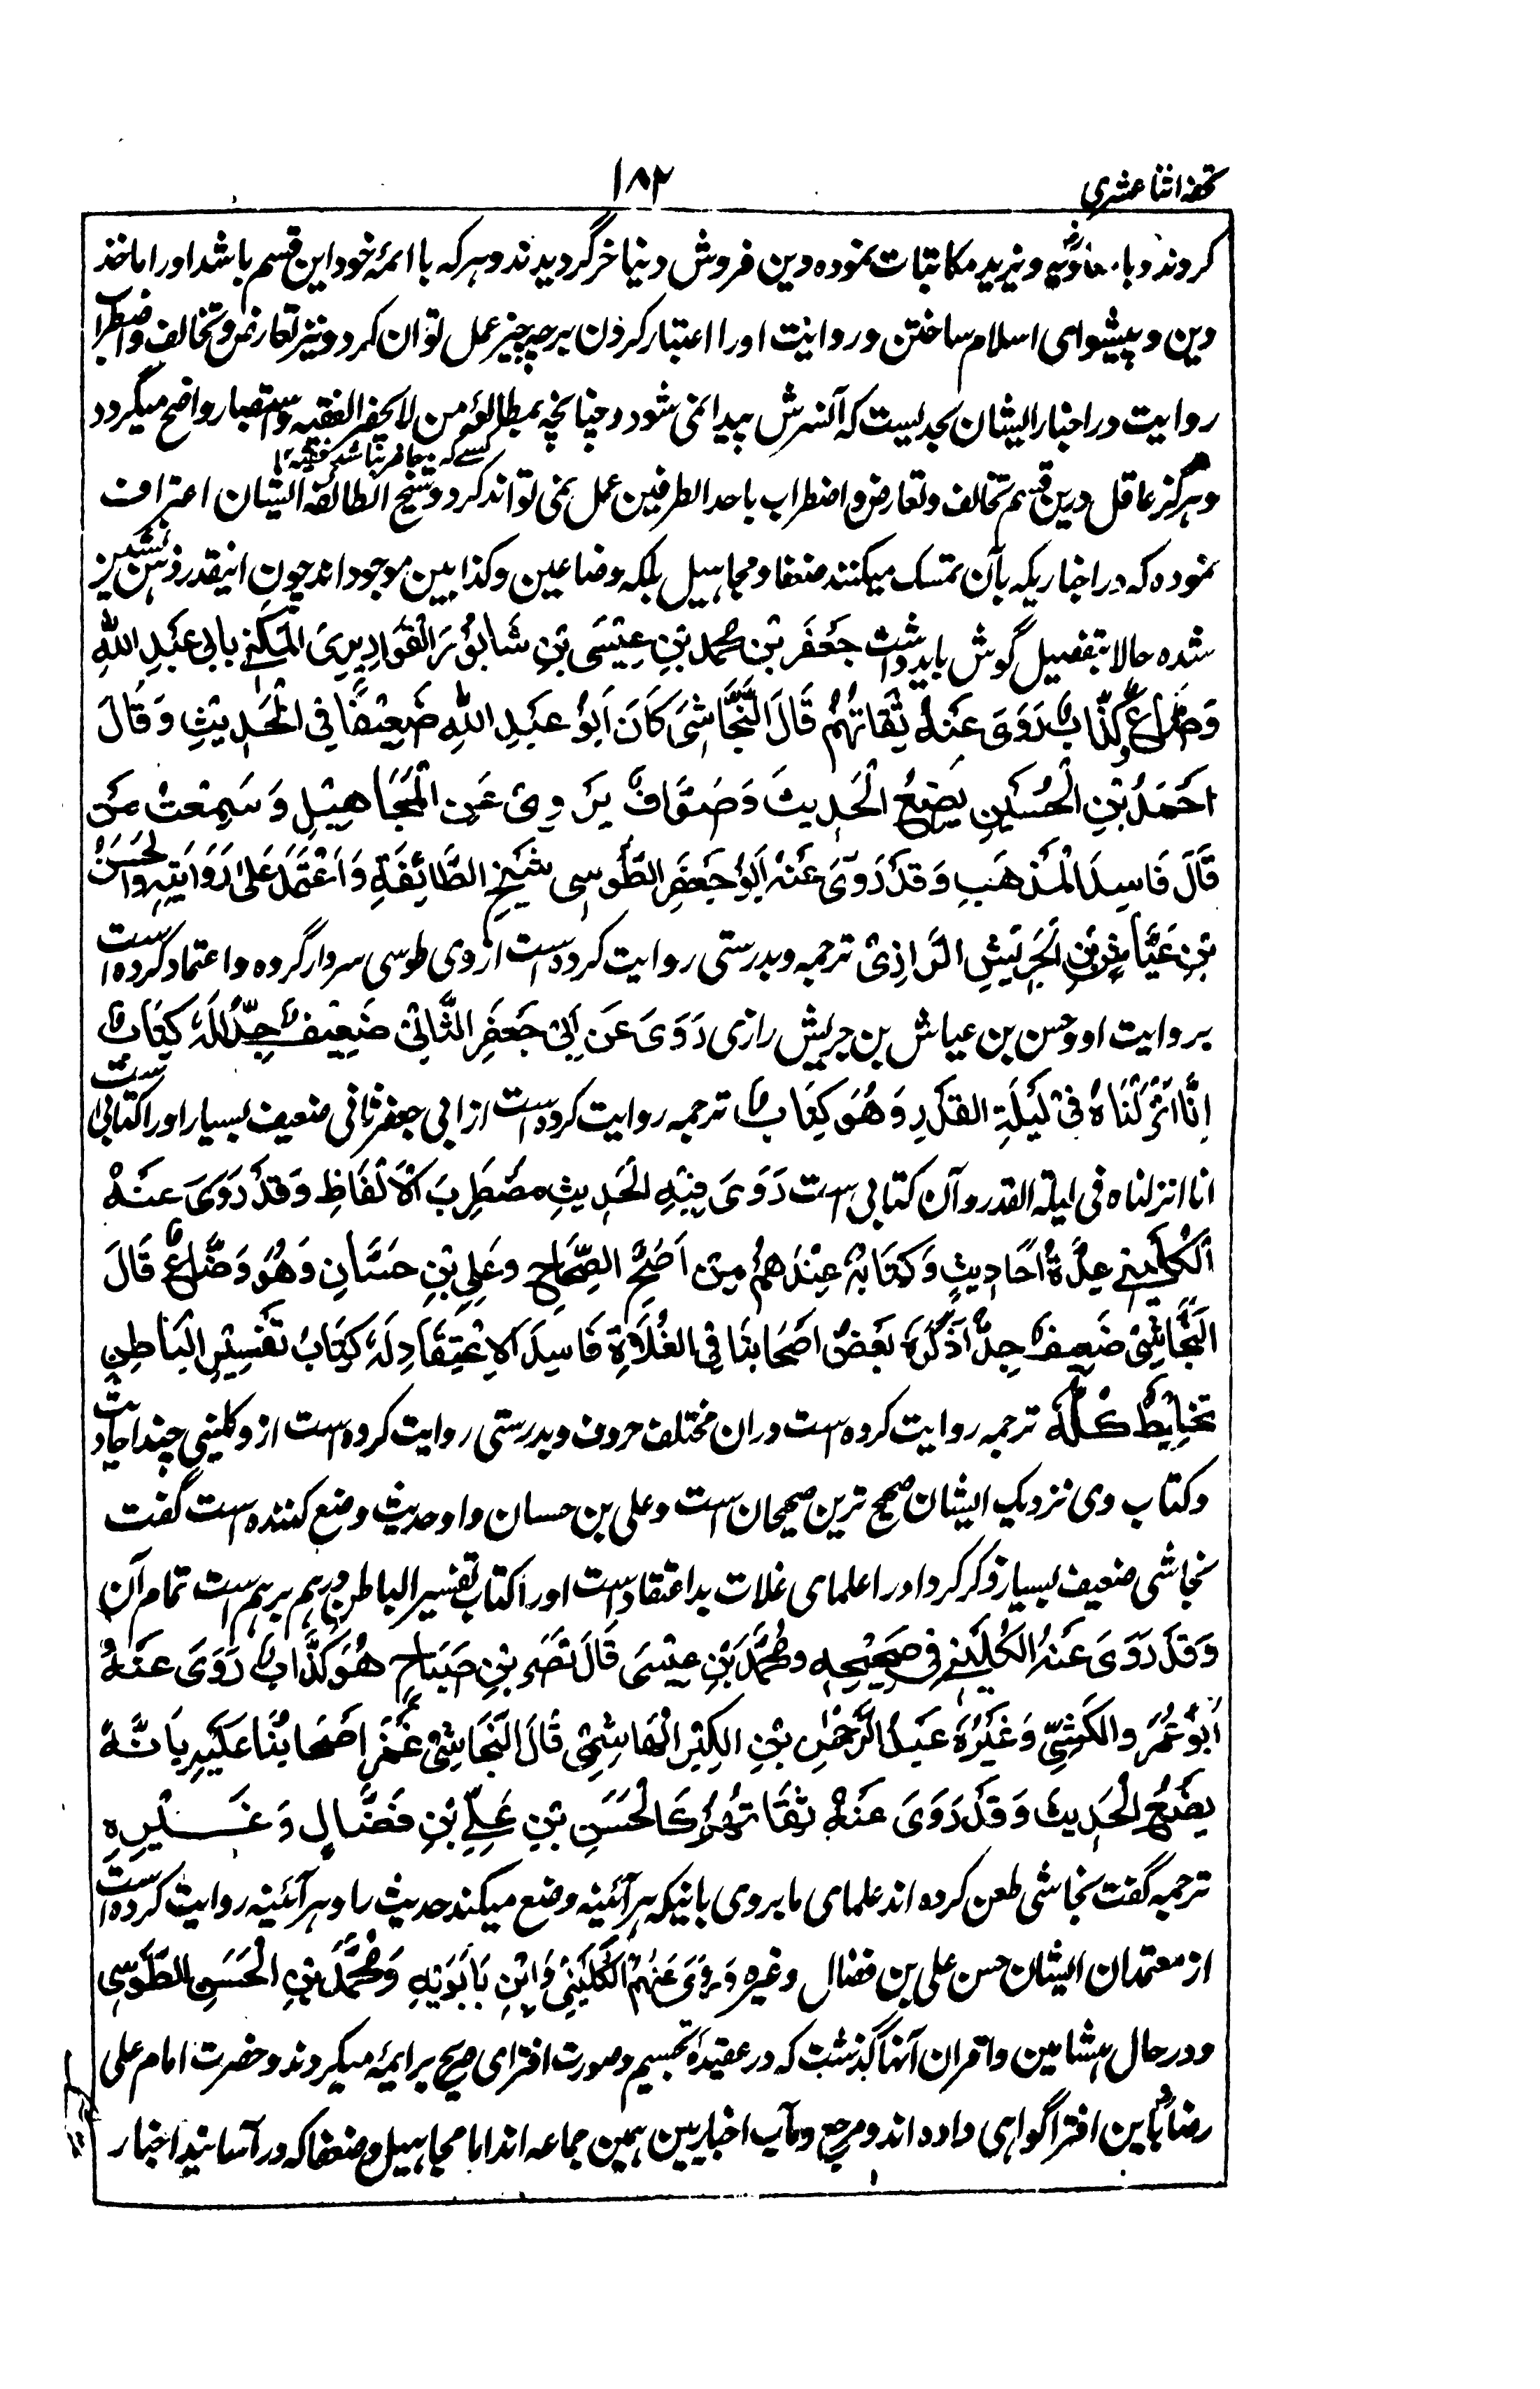 تحفہ اثنا عشری
۱۸۲
کردند و با معاویہ و یزید مکاتبات نمودہ دین فروش دنیا خر گردیدند و ہر کہ با ائمہ خود این قسم باشد اورا ماخذ
دین و پیشوای اسلام ساختن و روایت اورا اعتبار کردن بر چہ چیز عمل توان کرد و نیز تعارض و تخالف و اضطراب
روایت در اخبار ایشان بحدیست کہ آنسرش پیدا نمی شود و چنانچہ بمطالعہ من لا یحضر الفقیہ و استبصار واضح میگردد
کسے کہ نیجا ضر نباشد فقیہ ۱۲
و ہرگز عاقل درین قسم تخالف و تعارض و اضطراب باحد الطرفین عمل نمی تواند کرد و شیخ الطائفہ ایشان اعتراف
نمودہ کہ در اخباریکہ بآن تمسک میکنند ضعفا و مجاہیل بلکہ وضاعین و کذابین موجود اند چون اینقدر ذہن نشین نیز
شدہ حالا بتفصیل گوش باید داشت جَعْفَر بْن مُحمد بْنِ عِيْسَى بْنِ شَابُوْرَ الْقَوَادِيرِىِّ الْمَكَنّٰى بابى عَبْدِ اللّٰهِ
وَضَّاعٌ كَذَّابٌ رَوٰى عَنْهُ ثِقَاتُهُمْ قَالَ النَّجَّاشِىُّ كَانَ اَبُوْ عَبْدِ اللّٰهِ ضَعِيْفًا فِى الْحَدِيْثِ وَقَالَ
اَحْمَدُ بْنِ الْحُسَيْنِ يَضَعُ الْحَدِيثَ وَصَنَّافٌ يَرْوِىْ عَنِ الْمَجَاهِيْلِ وَسَمِعْتُ مَنْ
قَالَ فَاسِدَ الْمَذْهَبِ وَقَدْ رَوٰى عَنْهُ اَبُوْ جَعْفَرِ الطُّوْسِى شَيْخِ الطَّائِفَةِ وَاعْتَمَدَ عَلٰى رَوَايَتِهٖ وَالْحَسَنُ
بْنِ عَيَّاشِ بْنِ الْجَرِيْشِ الرَّازِىْ ترجمہ و بدرستی روایت کردہ است ازوی طوسی سردار گروہ و اعتماد کردہ است
بروایت او و حسن بن عیاش بن جریش رازی رَوٰى عَنْ اَبِىْ جَعْفَرِ الثَّانِىْ ضَعِيْفٌ جِدًّا لَهٗ كِتَابٌ
اِنَّا اَنْزَلْنَاهُ فِىْ لَيْلَةِ الْقَدْرِ وَهُوَ كِتَابٌ ترجمہ روایت کردہ است از ابی جعفر ثانی ضعیف بسیار اورا کتابی است
انا انزلناہ فی لیلۃ القدر و آن کتابی است رَوٰى فِيْهِ الْحَدِيثِ مُضْطَرِبَ الْاَلْفَاظِ وَقَدْ رَوٰى عَنْهُ
الْكُلَيْنِى عِدَّةَ اَحَادِيثٍ وَكِتَابُهٗ عِنْدَهُمْ مِنْ اَصَحِّ الصِّحَاحِ وعَلِى بْنِ حَسَّانِ وَهُوَ وَضَّاعٌ قَالَ
النَّجَاشِىُّ ضَعِيفٌ جِدًّا ذَكَرَهٗ بَعْضُ اَصْحَابِنَا فِى الْغُلَاةِ فَاسِدَ الْاِعْتِقَادِ لَهٗ كِتَابُ تَفْسِيْرِ الْبَاطِنِ
تخلِيْطٌ كُلُّهٗ ترجمہ روایت کردہ است دران مختلف حروف و بدرستی روایت کردہ است ازو کلینی چند احادیث
و کتاب وی نزدیک ایشان صحیح ترین صحیحان است و علی بن حسان واو حدیث وضع کنندہ است گفت
نجاشی ضعیف بسیار ذکر کرد اورا علمای غلات بد اعتقاد است اورا کتاب تفسیر الباطن درہم برہم است تمام آن
وَقَدْ رَوٰى عَنْهُ الْكُلَيْنِى فِى صَحِيْحِهٖ وَمُحَمَّدُ بْنِ عِيْسٰى قَالَ نَصْرُ بْنِ صَبَاحٍ هُوَ كَذَّابٌ رَوٰى عَنْهُ
اَبُوْ عُمَرو الكَشِّىُّ وَغَيْرُهٗ عَبْدُ الرَّحْمٰنِ بْنِ الكِثِيْرِ الْهَاشِمِىْ قَالَ النَّجَاشِىُّ غَمَزَ اَصْحَابُنَا عَلَيْهِ بِاَنَّهٗ
يَضَعُ الْحَدِيثَ وَقَدْ رَوٰى عَنْهُ ثِقَاتُهُمْ كَالْحَسَنِ بْنِ عَلِىِّ بْنِ فَضَّالٍ وَغَيْرِهٖ
ترجمہ گفت نجاشی طعن کردہ اند علمای ما بروی بانیکہ ہر آئینہ وضع میکند حدیث را و ہر آئینہ روایت کردہ است
از معتمدان ایشان حسن علی بن فضال و غیرہ وَرَوٰى عَنْهُمُ الْكُلَيْنِىْ وَابْنِ بَابَوَيْهِ وَمُحَمَّدُ بْنِ الْحَسَنِ الطُّوْسِى
و در حال ہشامین و اقران آنہا گذشت کہ در عقیدۂ تجسیم و صورت افترای صریح بر ایمہ میکردند و حضرت امام علی
رضا باین افترا گواہی دادہ اند و مرجع و مآب اخباریین ہمین جماعہ اند اما مجاہیل و ضعفا کہ در آسانید اخبار